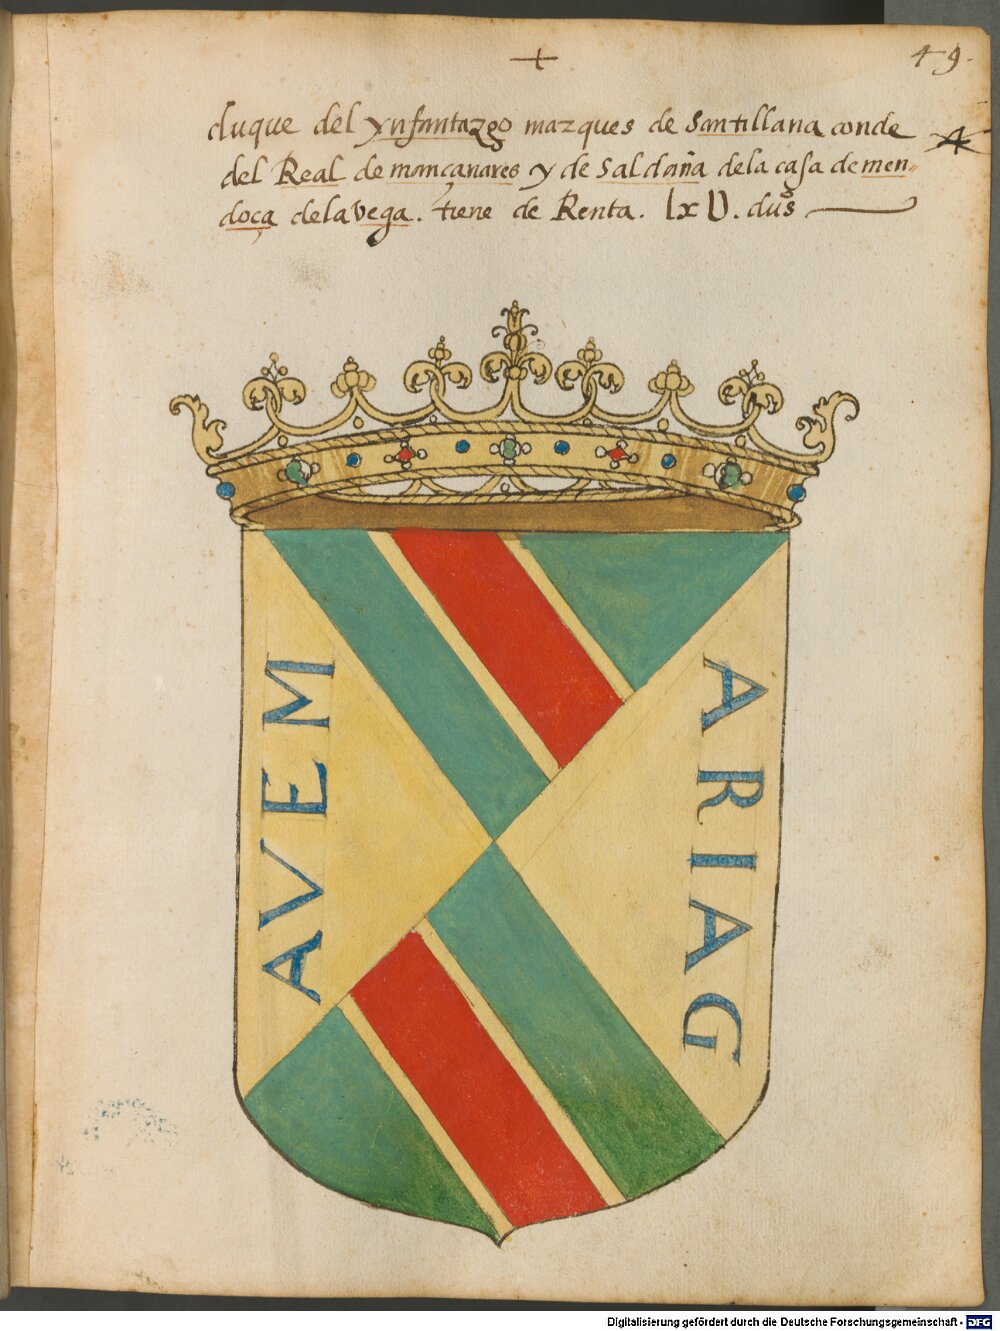 49.
duque del ynfantazgo marques de Santillana conde
del Real de mançanares y de Saldaña dela casa de men-
doça dela vega. tiene de Renta. lx U. dus
AVEM
ARIAG
Digitalisierung gefördert durch die Deutsche Forschungsgemeinschaft - DFG